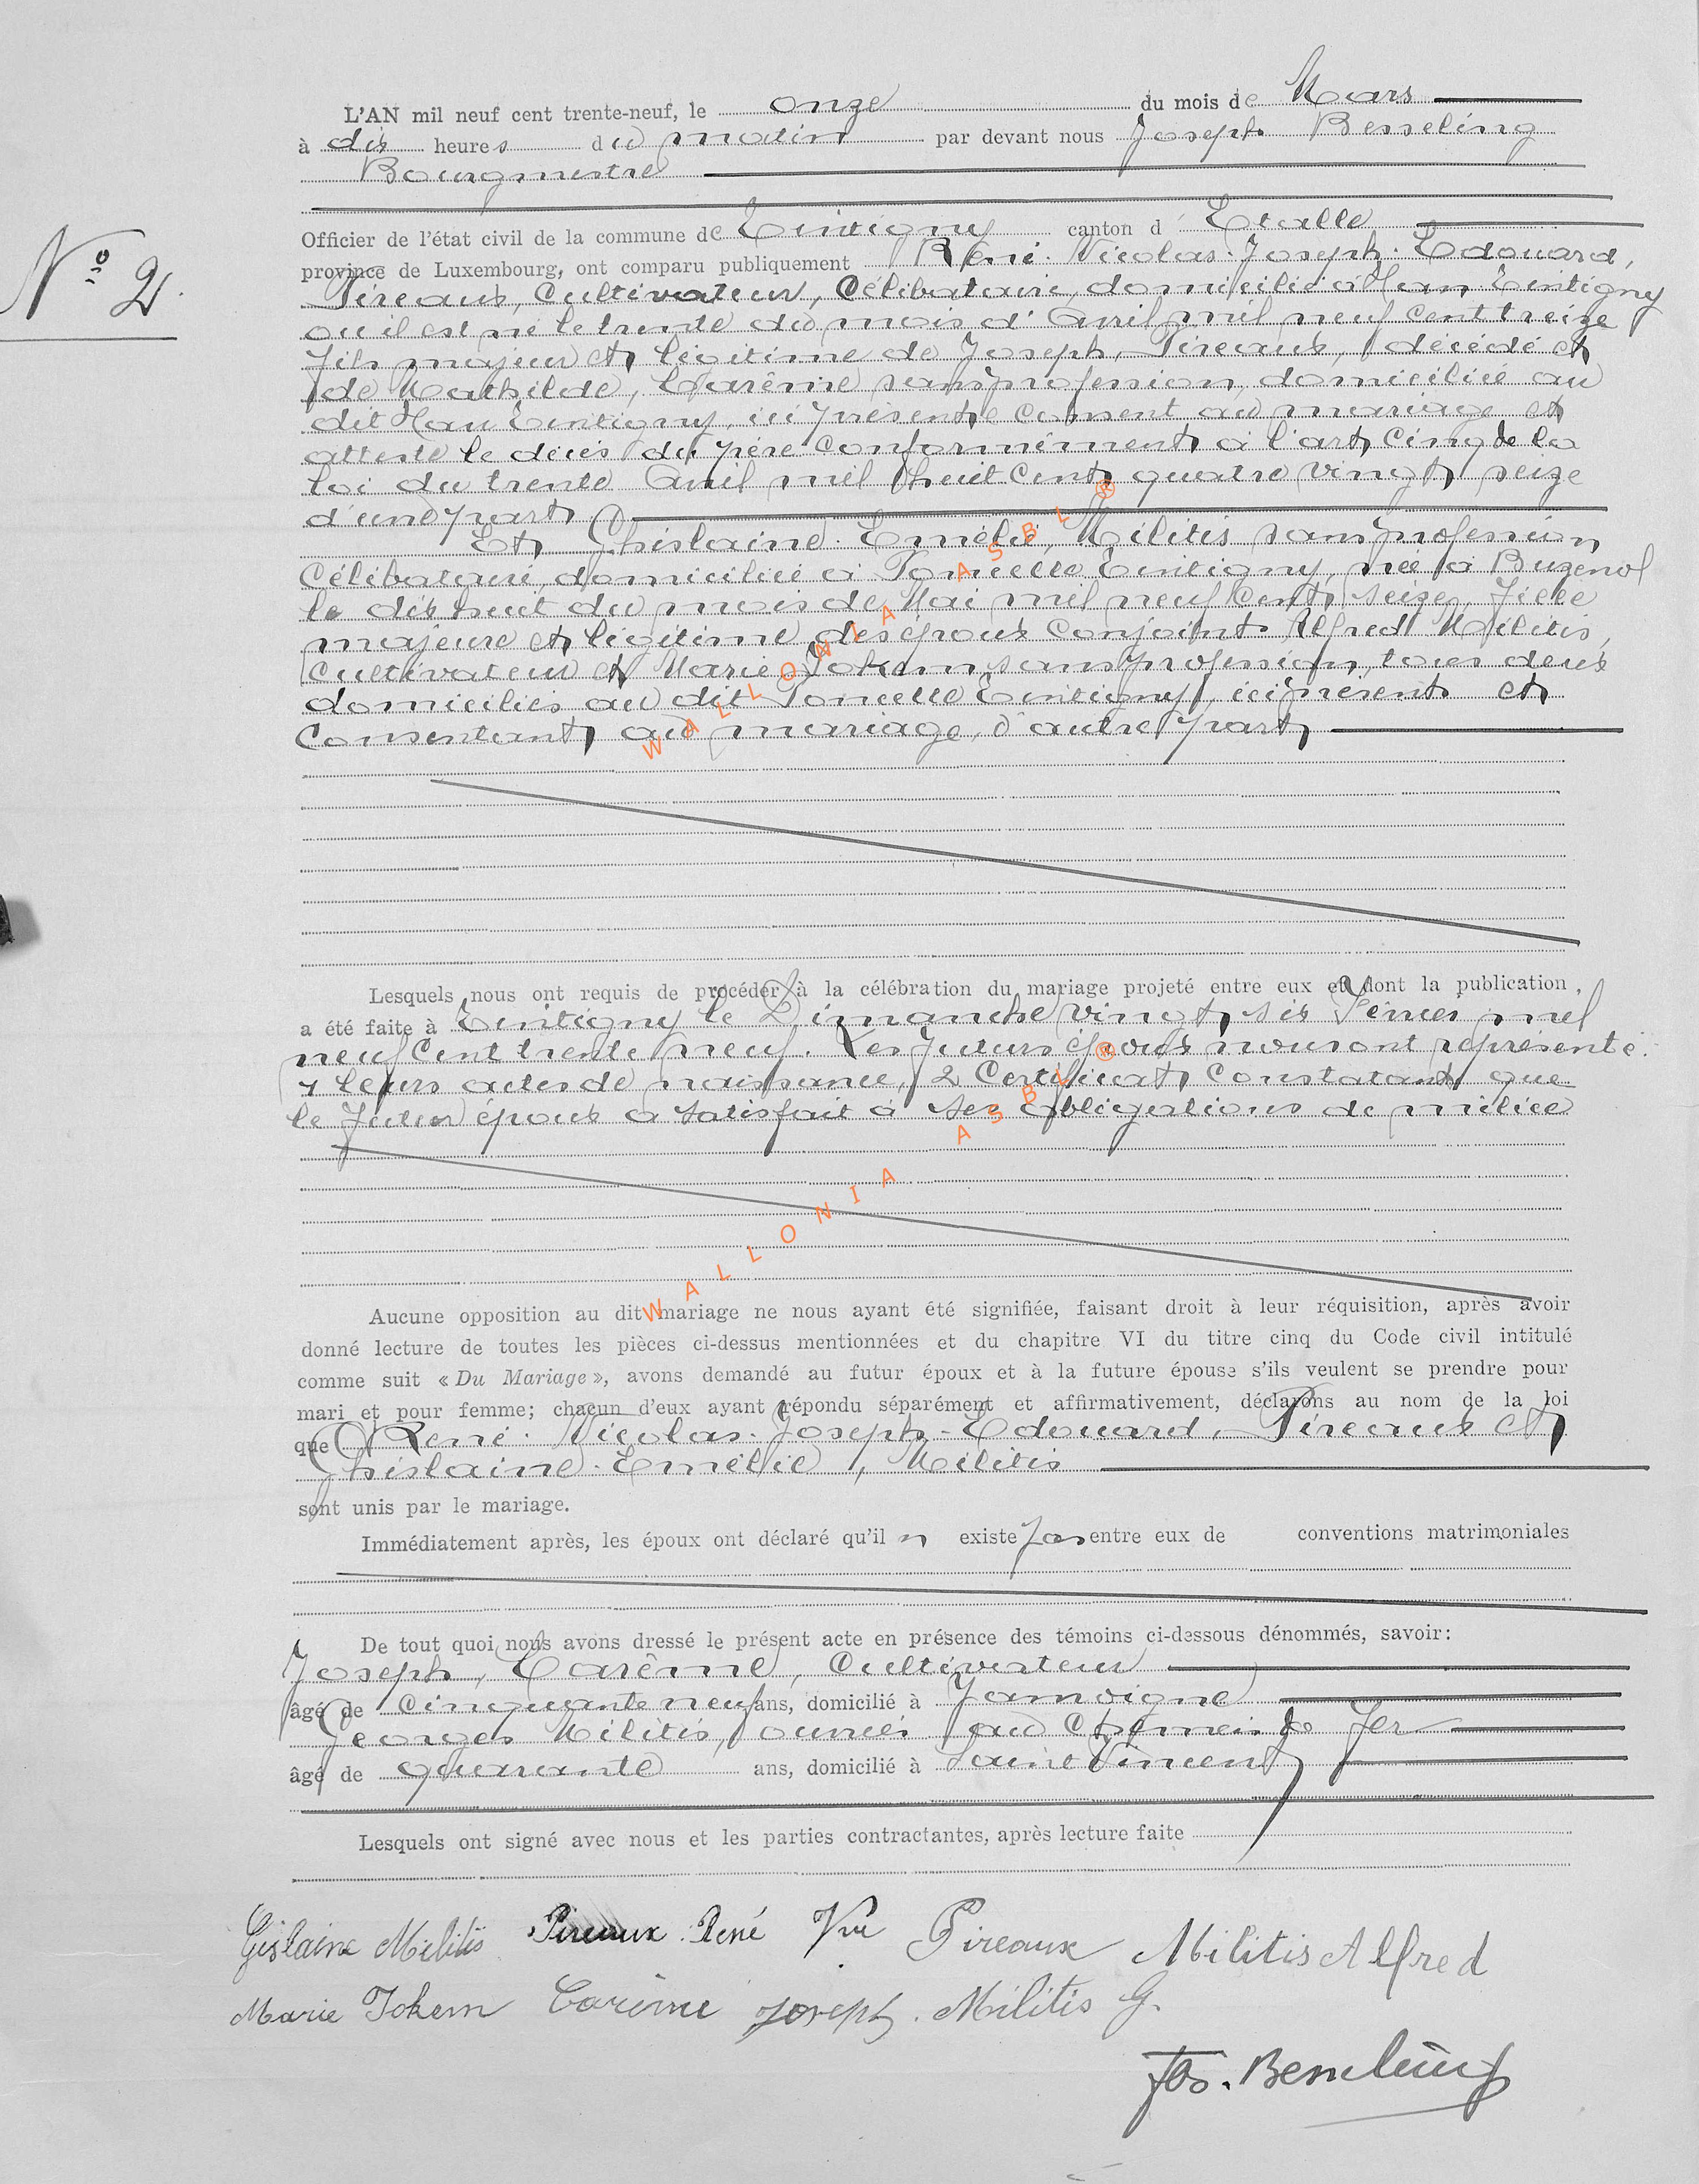 L'AN mil neuf cent trente-neuf, le onze du mois de Mars
à dix heures du matin par devant nous Joseph Besseling
Bourgmestre
Officier de l'état civil de la commune de Tintigny canton d' Etalle
N° 2.
province de Luxembourg, ont comparu publiquement René. Nicolas. Joseph. Edouard,
Pireaux, Cultivateur, Célibataire, domicilié à Han Tintigny
ou il est né le trente du mois d'Avril mil neuf cent treize
fils majeur et légitime de Joseph, Pireaux, décédé et
de Mathilde, Carême sans profession, domiciliée au
dit Han Tintigny, ici présente consent au mariage et
atteste le décès du père conformément à l'art cinq de la
loi du trente Avril mil huit cent quatre vingt seize
d'une part
Et Ghislaine. Emélie, Militis sans profession
Célibataire, domiciliée à Poncelle Tintigny, née à Buzenol
le dix huit du mois de Mai mil neuf cent seize, fille
majeure et légitime des époux conjoints Alfred Militis,
cultivateur et Marie Jokem sans profession, tous deux
domiciliés au dit Poncelle Tintigny, ici présents et
consentant au mariage, d'autre part
WALLONIA ASBL ®
Lesquels nous ont requis de procéder à la célébration du mariage projeté entre eux et dont la publication,
a été faite à Tintigny le Dimanche vingt six Février mil
neuf cent trente neuf. Les futurs époux nous ont représenté.
1 leurs actes de naissance, 2 Certificat constatant que
le futur époux a satisfait à ses obligations de milice
WALLONIA ASBL ®
Aucune opposition au dit mariage ne nous ayant été signifiée, faisant droit à leur réquisition, après avoir
donné lecture de toutes les pièces ci-dessus mentionnées et du chapitre VI du titre cinq du Code civil intitulé
comme suit « Du Mariage », avons demandé au futur époux et à la future épouse s'ils veulent se prendre pour
mari et pour femme; chacun d'eux ayant répondu séparément et affirmativement, déclarons au nom de la loi
que René. Nicolas. Joseph-Edouard, Pireaux et
Ghislaine. Emélie, Militis
sont unis par le mariage.
Immédiatement après, les époux ont déclaré qu'il n existe pas entre eux de conventions matrimoniales
De tout quoi nous avons dressé le présent acte en présence des témoins ci-dessous dénommés, savoir:
Joseph, Carême, Cultivateur
âgé de cinquante neuf ans, domicilié à Jamoigne
Georges Militis, ouvrier au Chemin de fer
âgé de quarante ans, domicilié à Saint Vincent
Lesquels ont signé avec nous et les parties contractantes, après lecture faite
Gislaine Militis Pireaux René Vve Pireaux Militis Alfred
Marie Jokem Carême Joseph. Militis G.
Jos. Besseling